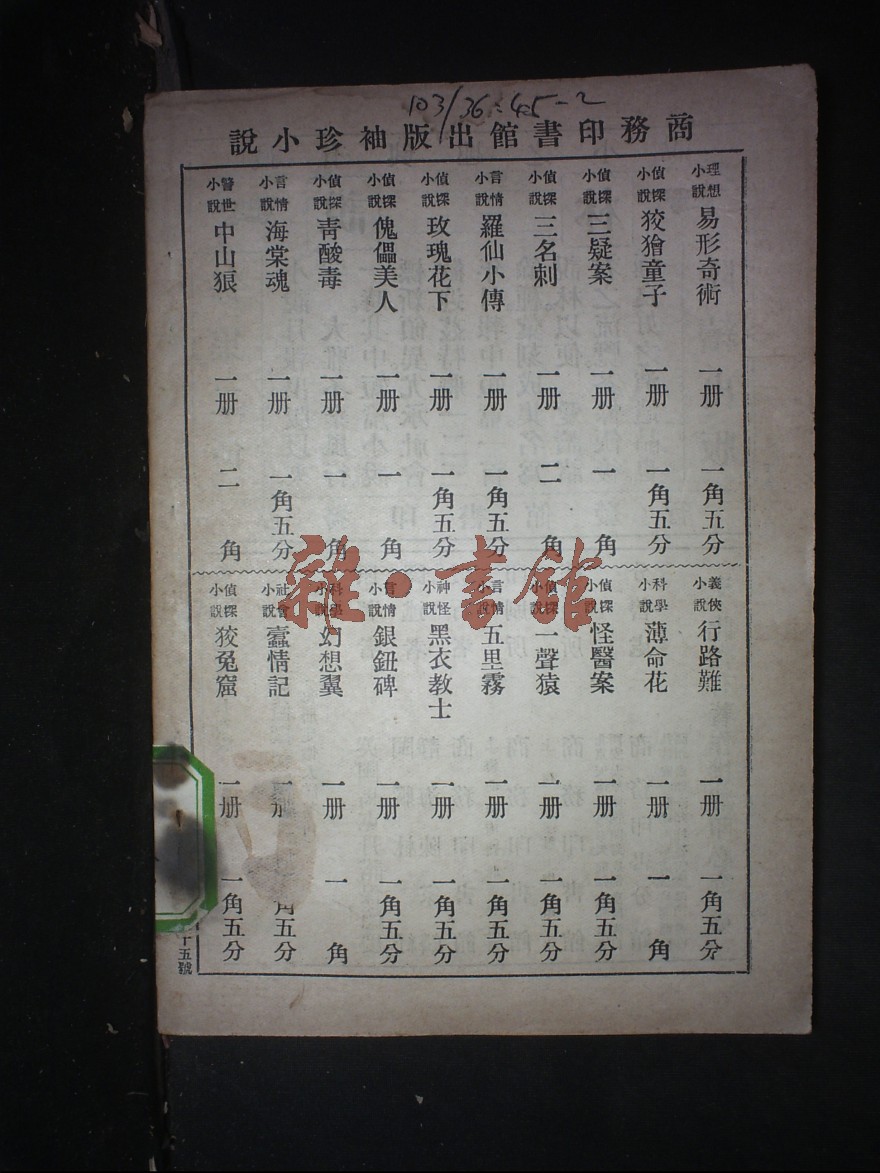 103/36:45-2
商務印書館出版袖珍小說
理想小說 易形奇術 一册 一角五分
偵探小說 狡獪童子 一册 一角五分
偵探小說 三疑案 一册 一角
偵探小說 三名刺 一册 二角
言情小說 羅仙小傳 一册 一角五分
偵探小說 玫瑰花下 一册 一角五分
偵探小說 傀儡美人 一册 一角
偵探小說 靑酸毒 一册 一角
言情小說 海棠魂 一册 一角五分
警世小說 中山狼 一册 二角
義俠小說 行路難 一册 一角五分
科學小說 薄命花 一册 一角
偵探小說 怪醫案 一册 一角五分
偵探小說 一聲猿 一册 一角五分
言情小說 五里霧 一册 一角五分
神怪小說 黑衣教士 一册 一角五分
言情小說 銀鈕碑 一册 一角五分
科學小說 幻想翼 一册 一角
社會小說 蠹情記 一册 一角五分
偵探小說 狡兔窟 一册 一角五分
十五號
雜·書館